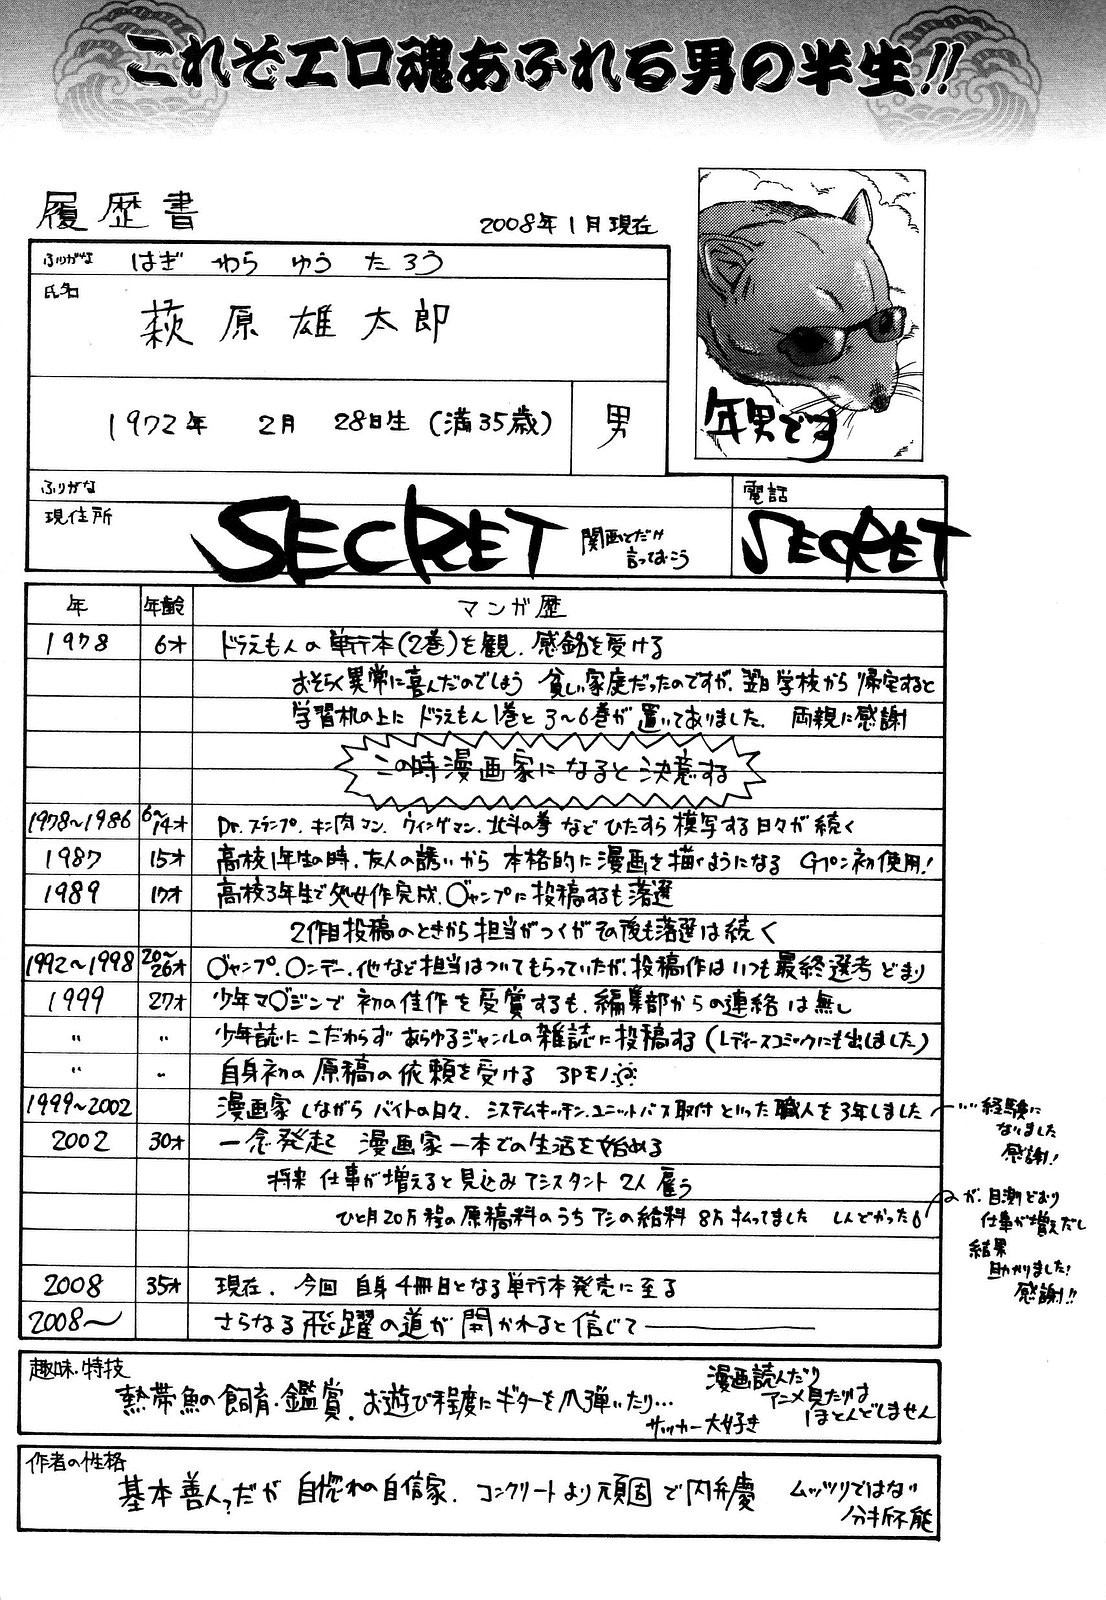 これぞエロ魂あふれる男の半生!!
履歴書
2008年1月現在
ふりがな はぎ わら ゆう たろう
氏名
萩原雄太郎
1972年 2月 28日生 (満35歳)
男
年男です
ふりがな
現住所
SECRET
関西とだけ
言っておこう
電話
SECRET
年 年齢 マンガ歴
1978 6才 ドラえもんの単行本(2巻)を観、感銘を受ける
おそらく異常に喜んだのでしょう 貧しい家庭だったのですが、翌日学校から帰宅すると
学習机の上にドラえもん1巻と3〜6巻が置いてありました。 両親に感謝
この時漫画家になると決意する
1978〜1986 6〜14才 Dr.スランプ、キン肉マン、ウイングマン、北斗の拳などひたすら模写する日々が続く
1987 15才 高校1年生の時、友人の誘いから本格的に漫画を描くようになる Gペン初使用!
1989 17才 高校3年生で処女作完成、○ャンプに投稿するも落選
2作目投稿のときから担当がつくがその後も落選は続く
1992〜1998 20〜26才 ○ャンプ、○ンデー、他など担当はついてもらっていたが、投稿作はいつも最終選考どまり
1999 27才 少年マ○ジンで初の佳作を受賞するも、編集部からの連絡は無し
〃 〃 少年誌にこだわらずあらゆるジャンルの雑誌に投稿する(レディースコミックにも出しました)
〃 〃 自身初の原稿の依頼を受ける 3Pモノ
1999〜2002 漫画家しながらバイトの日々、システムキッチン、ユニットバス取付といった職人を3年しました
…経験に
なりました
感謝!
2002 30才 一念発起 漫画家一本での生活を始める
将来仕事が増えると見込みアシスタント2人雇う
ひと月20万程の原稿料のうちアシの給料8万払ってました しんどかった
が、目測どおり
仕事が増えだし
結果
助かりました!
感謝!!
2008 35才 現在、今回自身4冊目となる単行本発売に至る
2008〜 さらなる飛躍の道が開かれると信じて――
趣味・特技
熱帯魚の飼育・鑑賞、お遊び程度にギターを爪弾いたり…
サッカー大好き
漫画読んだり
アニメ見たりは
ほとんどしません
作者の性格
基本善人っだが自惚れの自信家、コンクリートより頑固で内弁慶
ムッツリではない
分析不能